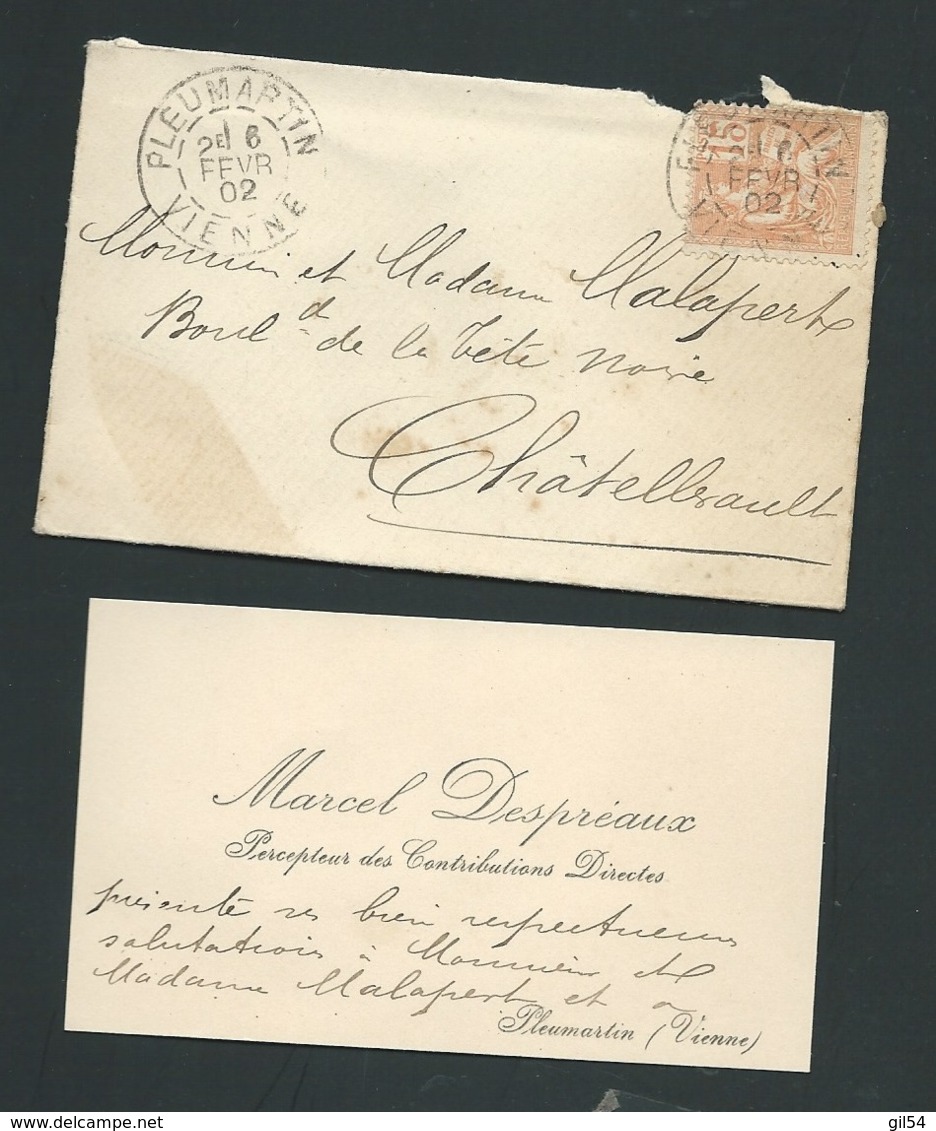 PLEUMARTIN
2E 6
FEVR
02
VIENNE
15
2E 6
FEVR
02
Monsieur et Madame Malapert
Boul d de la Tête Noire
Châtellerault
Marcel Despréaux
Percepteur des Contributions Directes
présente ses bien respectueuses
salutations à Monsieur et
Madame Malapert et a
Pleumartin (Vienne)
gil54